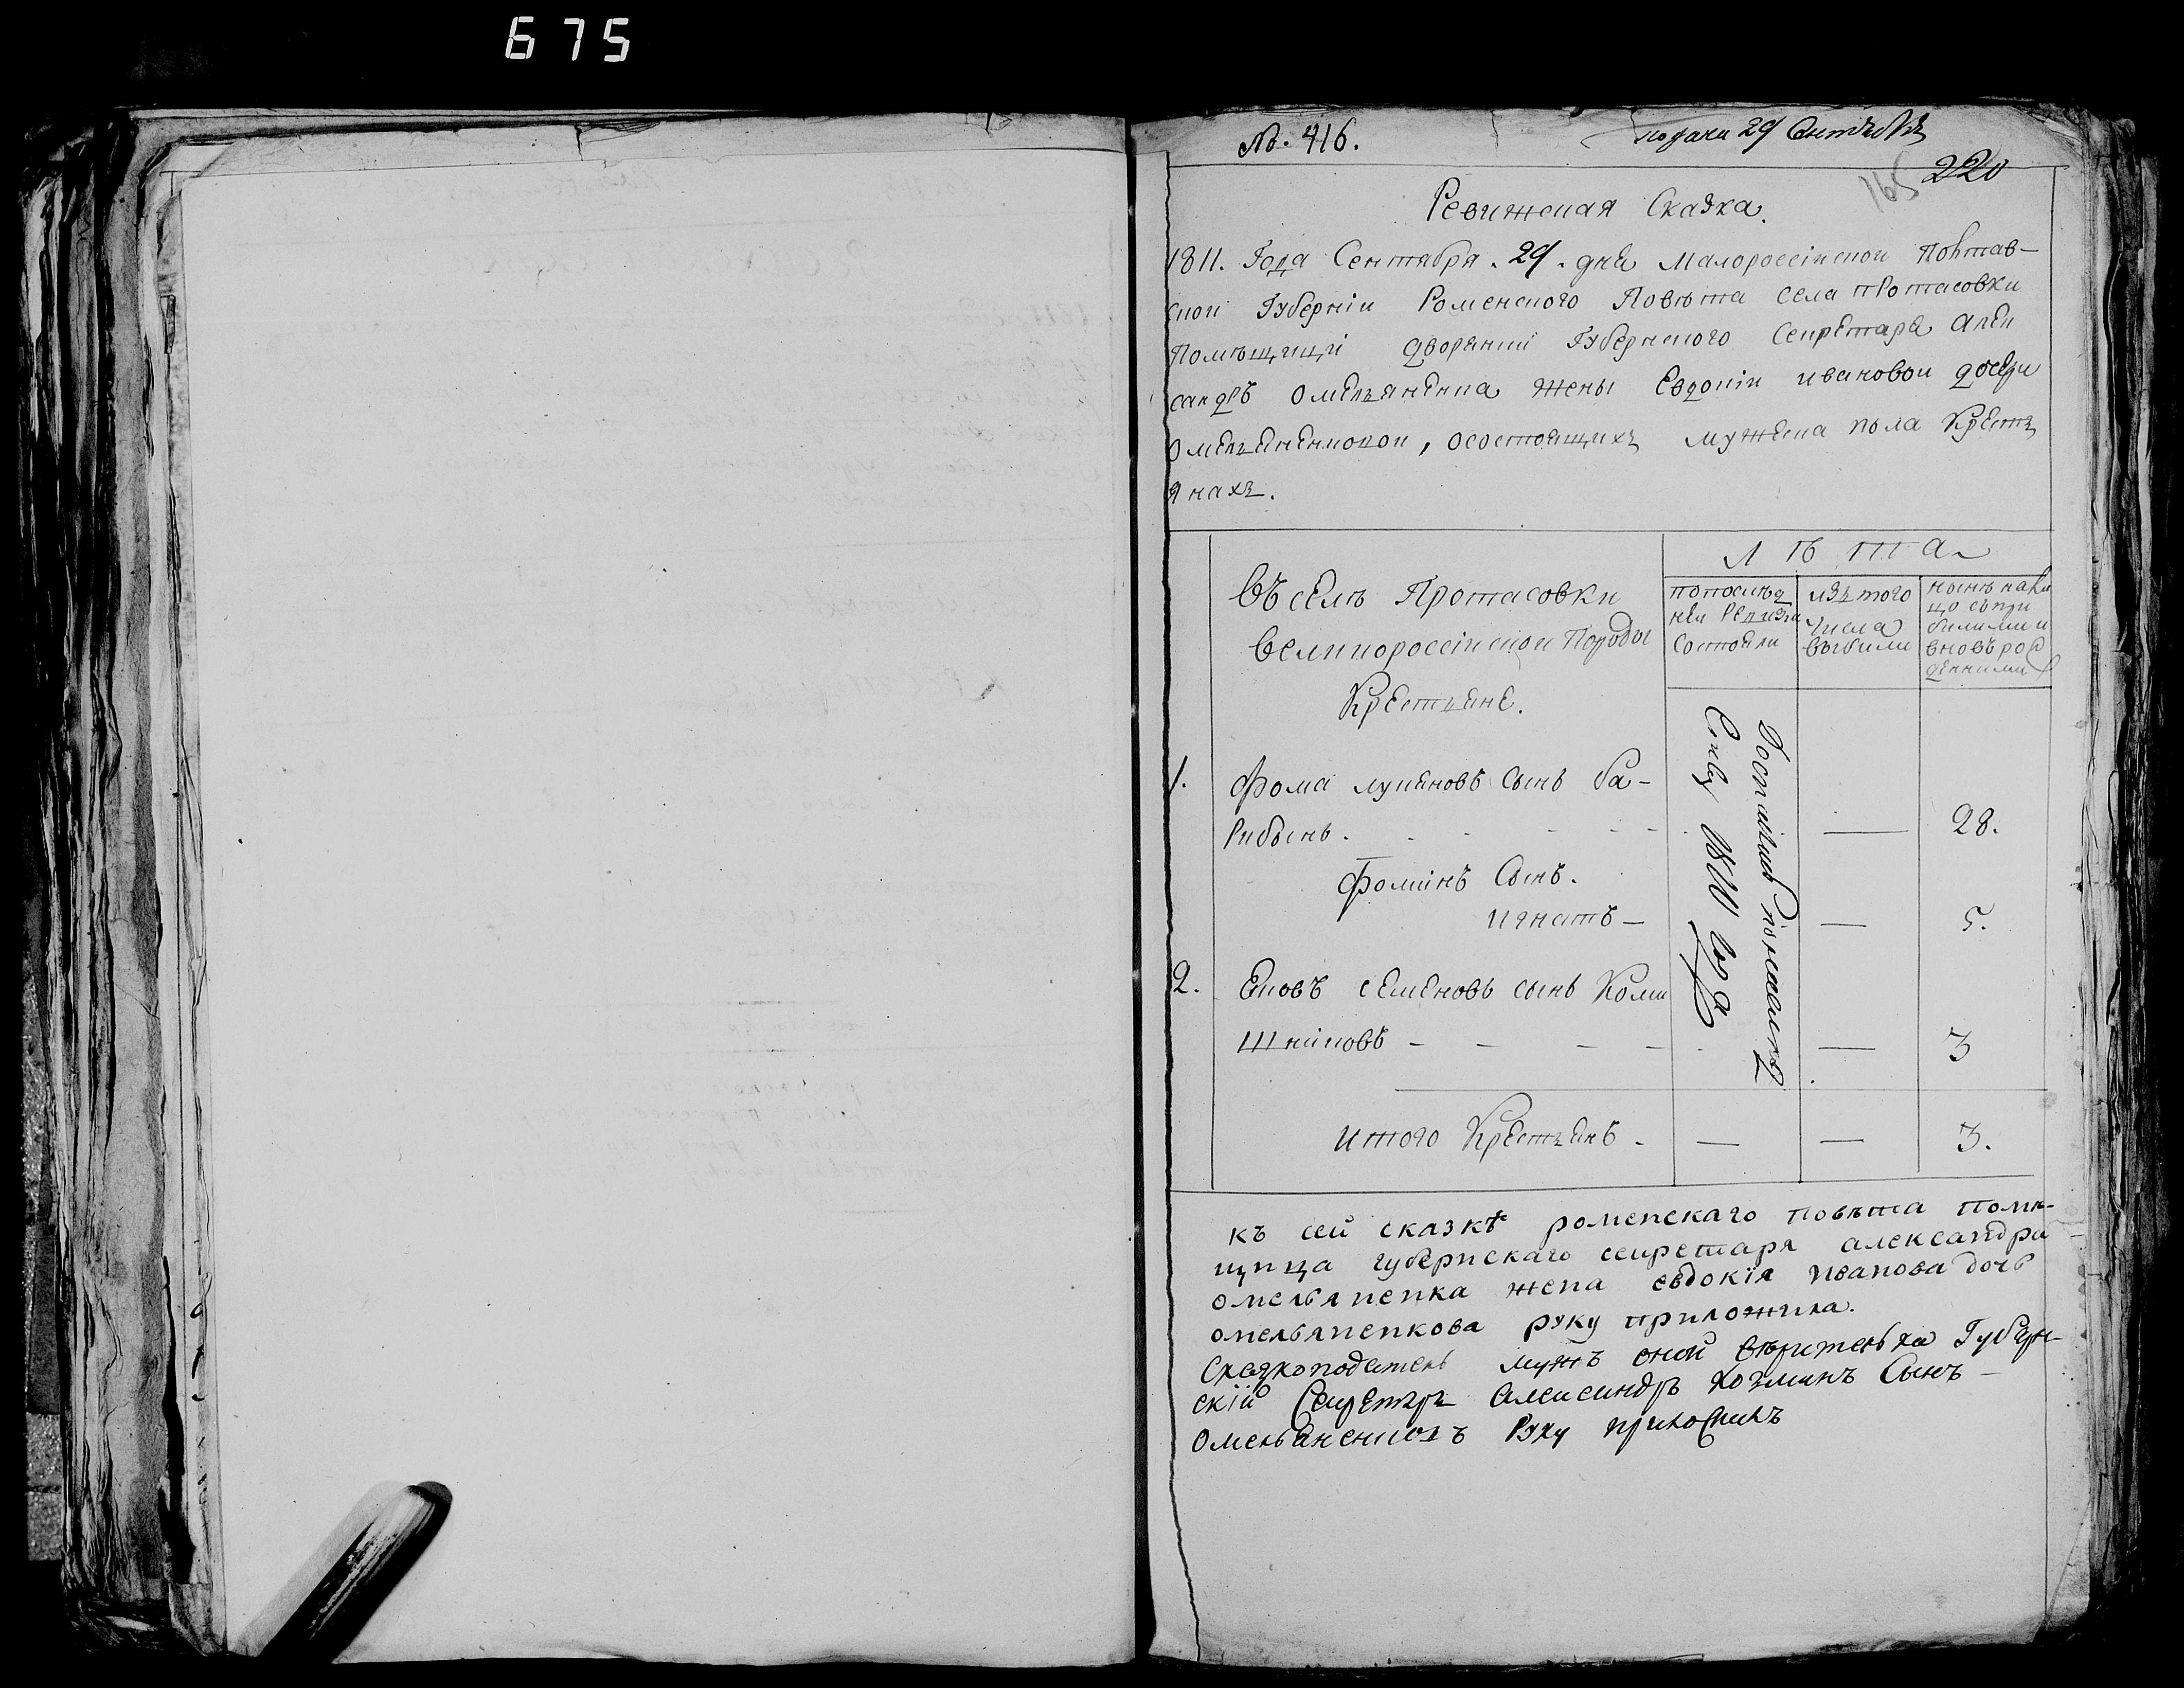 675
№. 416.
подана 29 Сентября
165
220
Ревижская Сказка.
1811. Года Сентября. 29. дня Малороссійской Полтав-
ской Губерніи Роменского Повѣта села протасовки
Помѣщици дворянки Губернского Секретаря Алек
сандръ Омельяненка жены Евдокіи ивановой дочери
Омельяненковой, осостоящихъ мужеска пола Крестъ
янахъ.
Въ селѣ Протасовки
великороссійской Породы
Крестьяне.
Лѣта
попослѣд
ней Ревизіи
состояли
изъ того
числа
выбили
нынѣ нали
цо съ при
билими и
вновъ рож
денними
1. Фома лукяновъ сынъ ба-
рибынъ. - - - - - 28.
Фоминъ Сынъ.
игнатъ — — 5.
2. Яковъ семеновъ сынъ Коли
шниковъ - - - - — 3
1811 года
итого Крестьянъ - — — 3.
къ сей сказкѣ роменскаго повѣта помѣ-
щица губернскаго секретаря александра
омельяненка жена евдокія иванова дочь
омельяненкова руку приложила.
Сказкоподатель мужъ оной вѣрителька Губерн-
скій Секретарь Александръ Козминъ Сынъ —
Омельяненковъ Руку приложилъ